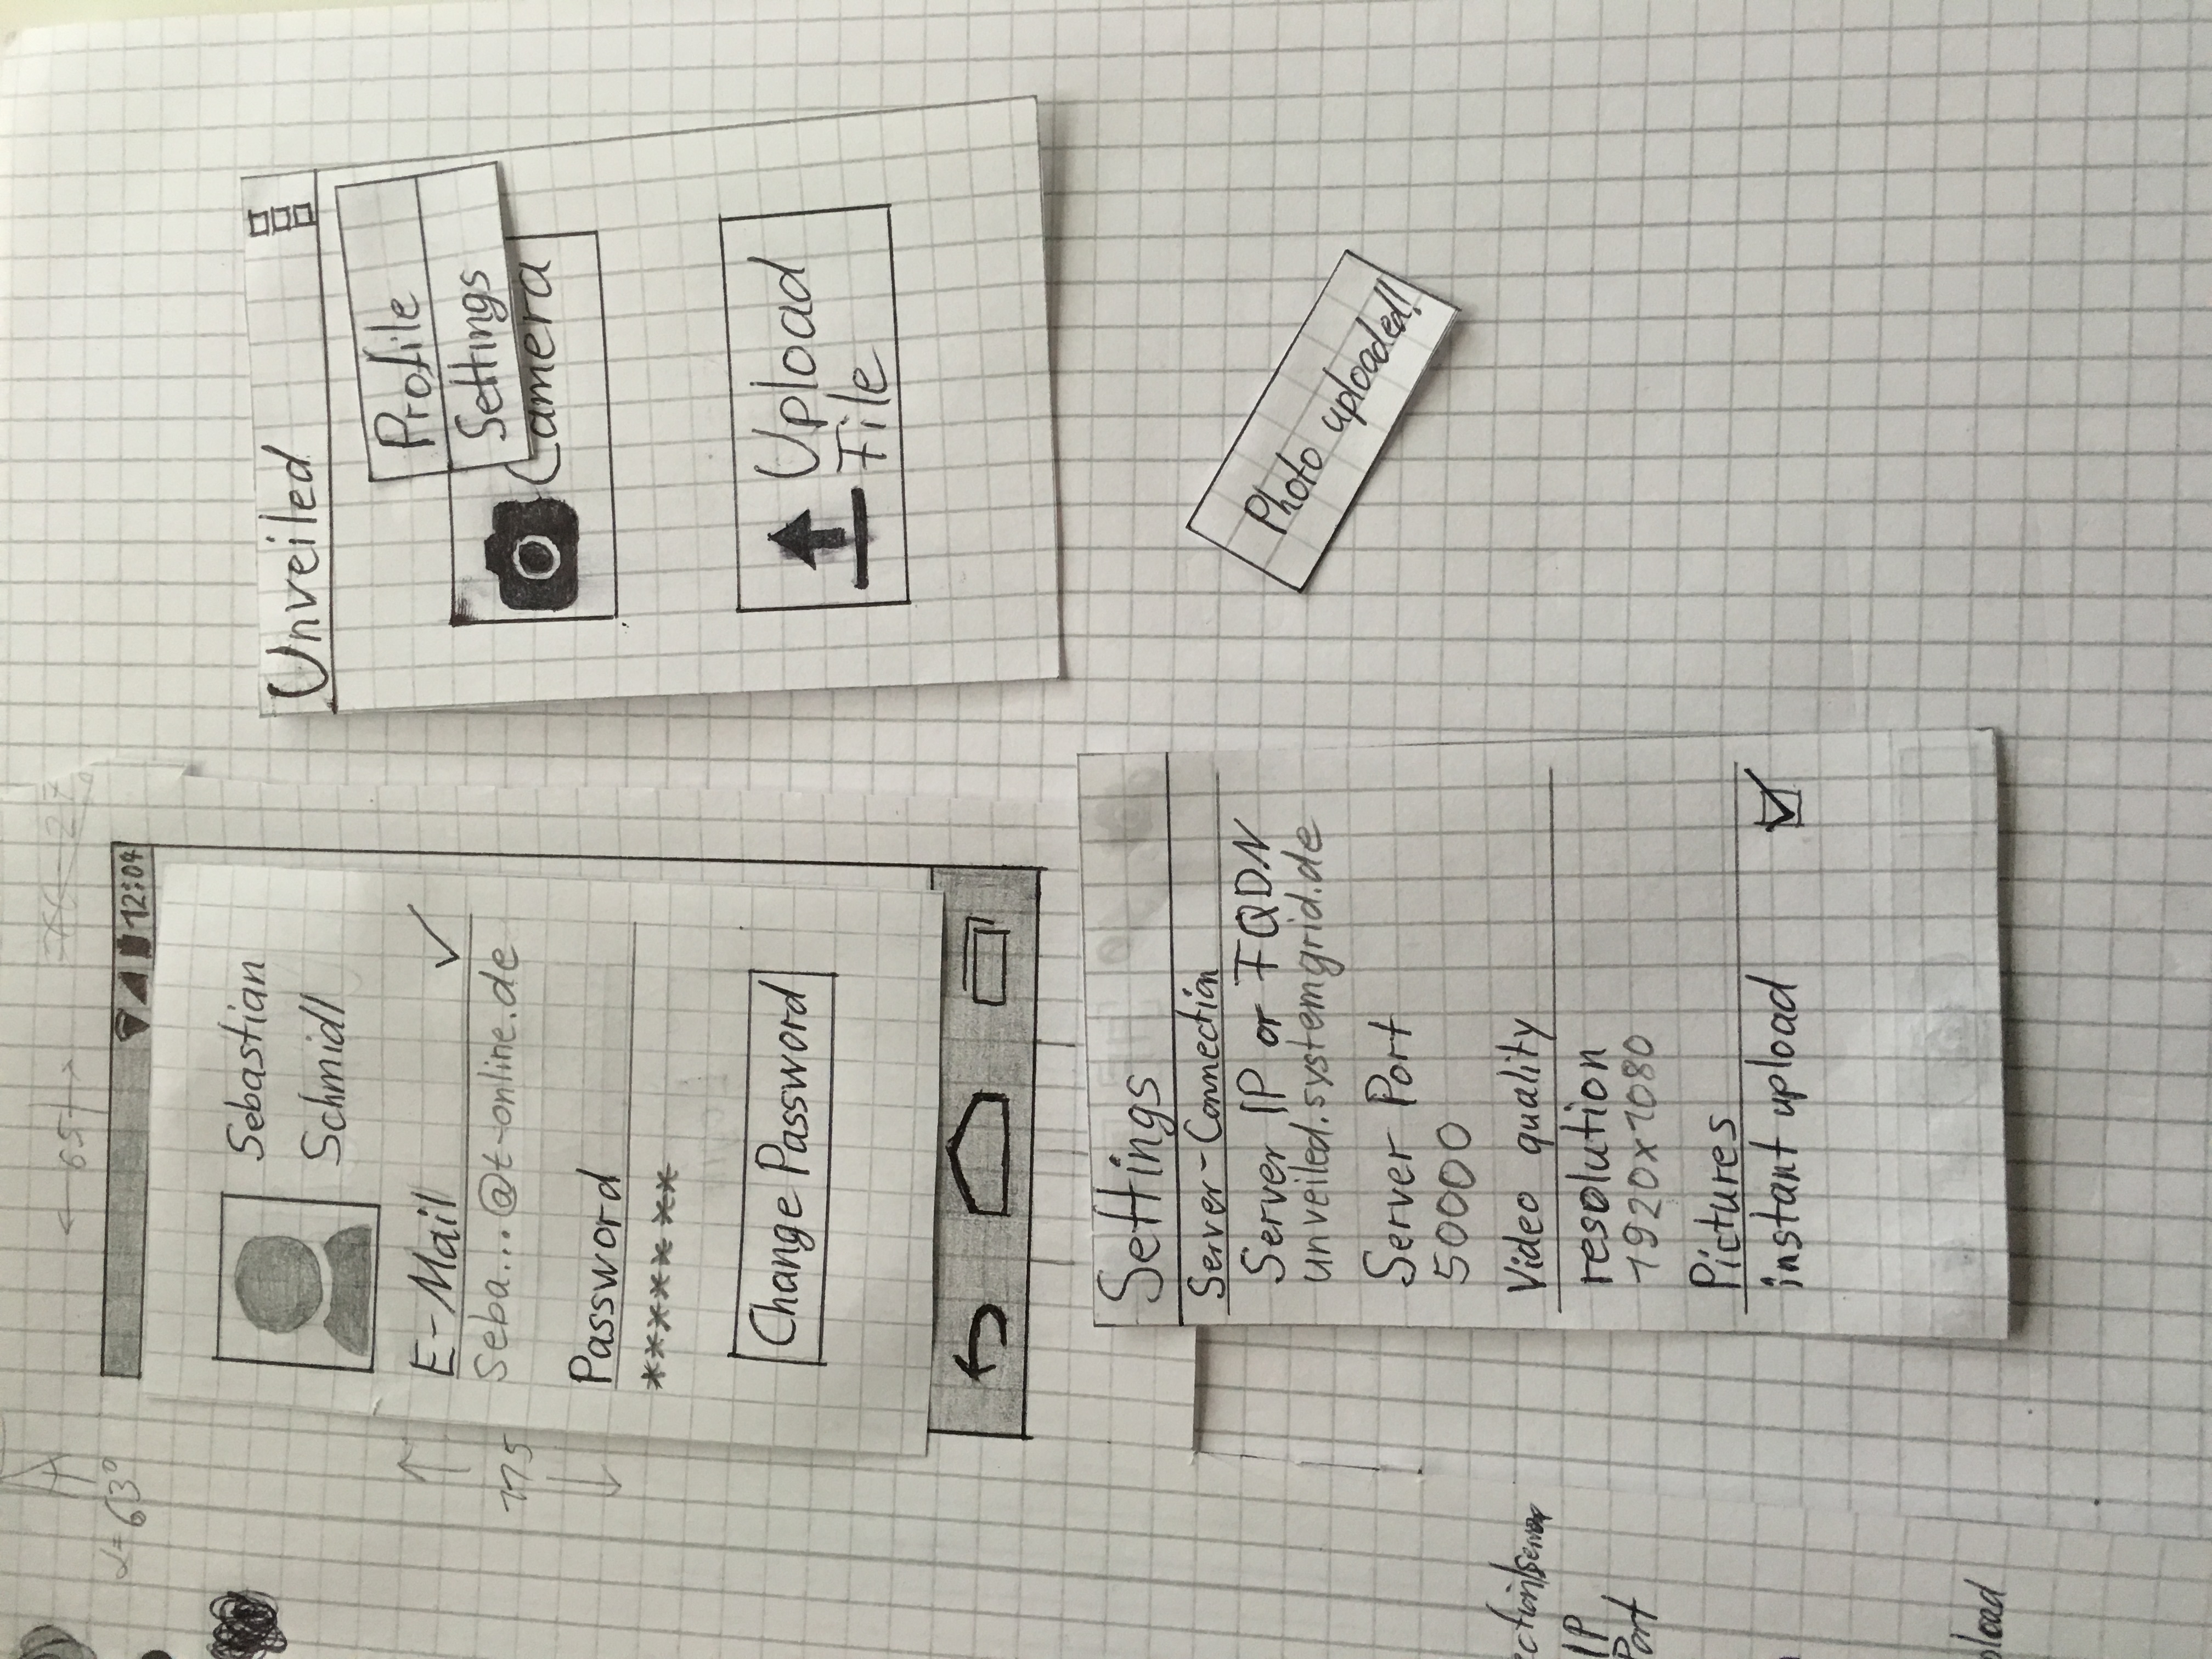 65
α=63°
12:04
Sebastian
Schmidl
E-Mail
Seba...@t-online.de
115
Password
*******
Change Password
Unveiled
Profile
Settings
Camera
Upload
File
Settings
Server-Connection
Server IP or FQDN
unveiled.systemgrid.de
Server Port
50000
Video quality
resolution
1920x1080
Pictures
instant upload
Photo uploaded!
ection/server
IP
Port
pload